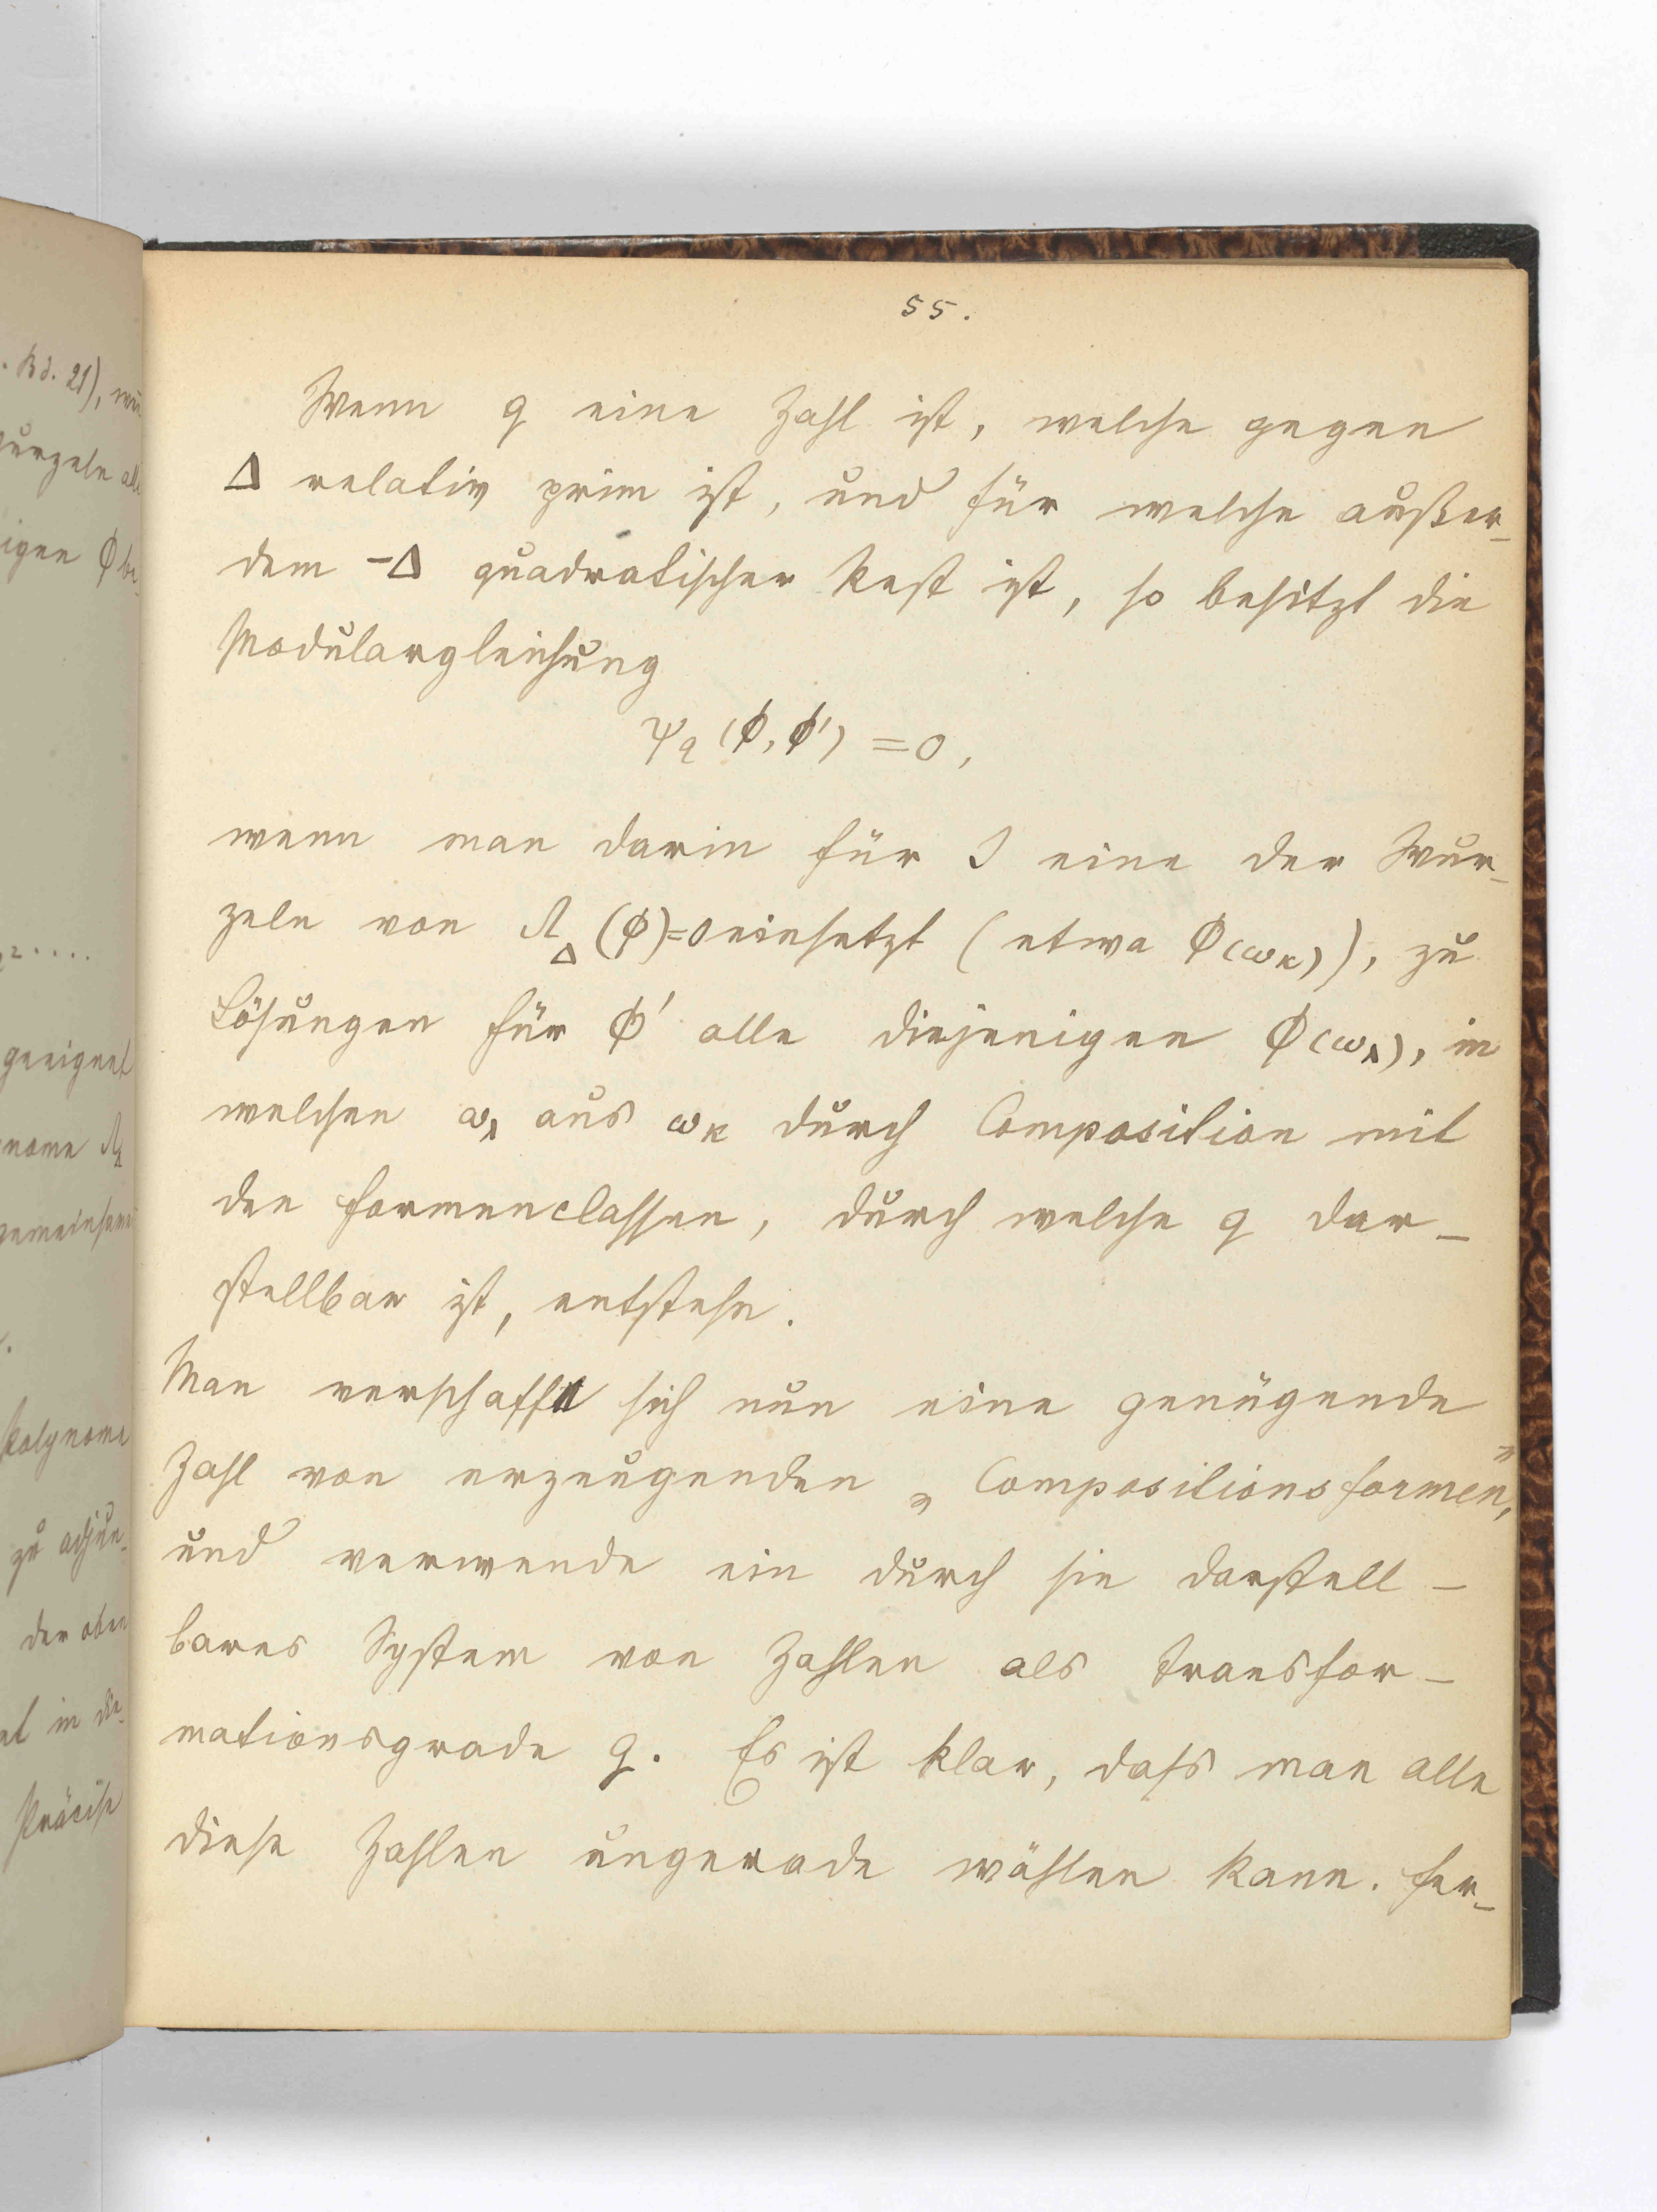 55.
Wenn q eine Zahl ist, welche gegen
Δ relativ prim ist, und für welche außer-
dem -Δ quadratischer Rest ist, so besitzt die
Modulargleichung
Ψq (ϕ, ϕ') = 0,
wenn man darin für J eine der Wur-
zeln von Λ_Δ (ϕ)=0 einsetzt (etwa ϕ(ωκ)), zu
Lösungen für ϕ' alle diejenigen ϕ(ωλ), in
welchen ωλ aus ωκ durch Composition mit
den Formenclassen, durch welche q dar-
stellbar ist, entstehn.
Man verschafft sich nun eine genügende
Zahl von erzeugenden „Compositionsformen",
und verwende ein durch sie darstell-
bares System von Zahlen als Transfor-
mationsgrade q. Es ist klar, dafs man alle
diese Zahlen ungerade wählen kann. Fer-
. Bd. 21), 
igen ϕ be-
2 ....
geeignet
nome Λ_Δ
gemeinsame
Polynome
zu adjun-
der oben
et in die-
Präcise